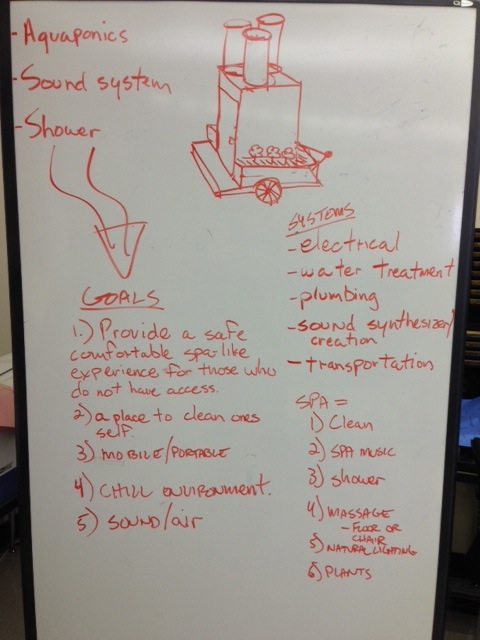 - Aquaponics
- Sound system
- Shower
GOALS
1.) Provide a safe
comfortable spa-like
experience for those who
do not have access.
2) a place to clean ones
self.
3) MOBILE/PORTABLE
4) CHILL ENVIRONMENT.
5) SOUND/air
SYSTEMS
- electrical
- water treatment
- plumbing
- sound synthesizer/
creation
- transportation
SPA =
1) Clean
2) SPA MUSIC
3) Shower
4) MASSAGE
- FLOOR OR
CHAIR
5) NATURAL LIGHTING
6) PLANTS